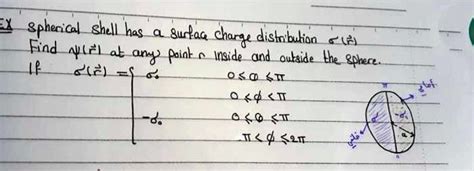 EX Spherical shell has a surface charge distribution σ(r⃗)
Find ψ(r⃗) at any point r inside and outside the sphere.
If σ(r⃗) = { σ₀ 0 ≤ θ ≤ π
0 < ϕ < π
-σ₀ 0 ≤ θ ≤ π
π < ϕ ≤ 2π
π
σ₀
-σ₀
a